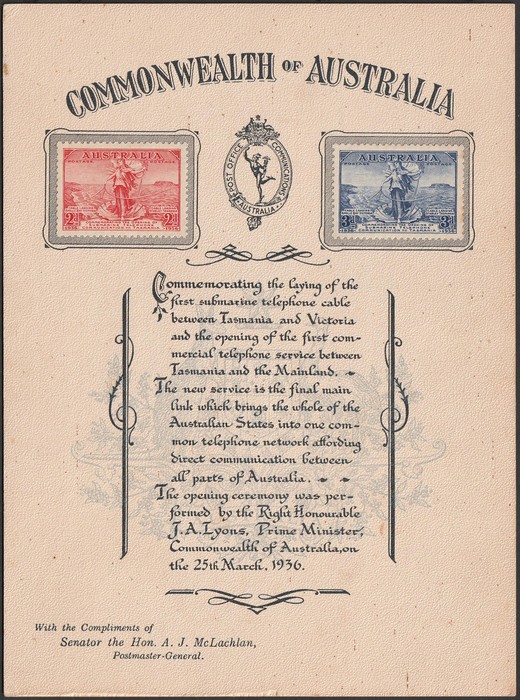 COMMONWEALTH OF AUSTRALIA
AUSTRALIA
POSTAGE POSTAGE
2D 2D
1936 1936
POST OFFICE COMMUNICATIONS
AUSTRALIA
AUSTRALIA
POSTAGE POSTAGE
3D 3D
1936 1936
Commemorating the laying of the
first submarine telephone cable
between Tasmania and Victoria
and the opening of the first com-
mercial telephone service between
Tasmania and the Mainland.
The new service is the final main
link which brings the whole of the
Australian States into one com-
mon telephone network affording
direct communication between
all parts of Australia.
The opening ceremony was per-
formed by the Right Honourable
J.A. Lyons, Prime Minister,
Commonwealth of Australia, on
the 25th March, 1936.
With the Compliments of
Senator the Hon. A. J. McLachlan,
Postmaster-General.